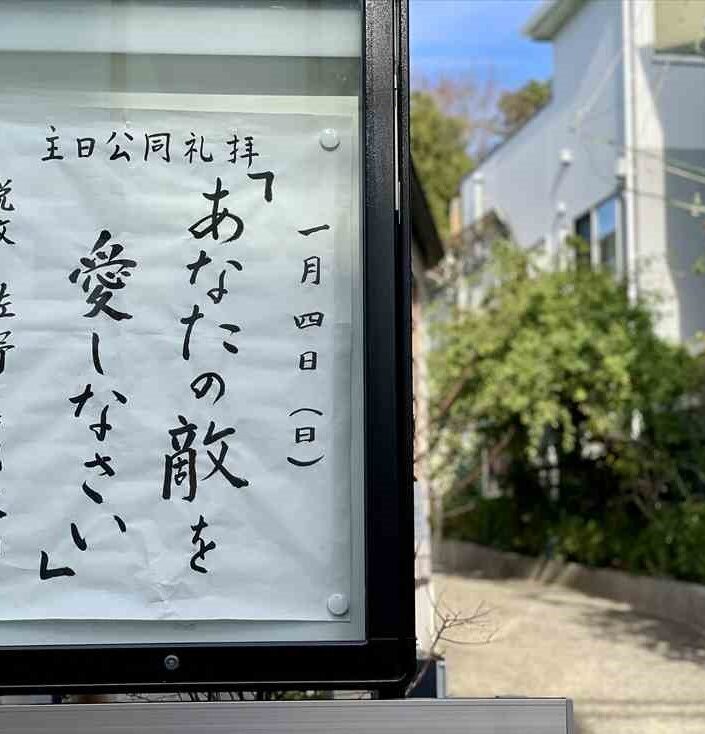 主日公同礼拝
一月四日（日）
「あなたの敵を
愛しなさい」